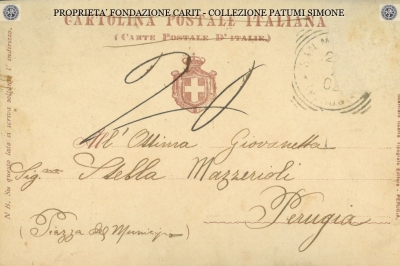 PROPRIETA' FONDAZIONE CARIT - COLLEZIONE PATUMI SIMONE
CARTOLINA POSTALE ITALIANA
(CARTE POSTALE D'ITALIE)
All' Ottima Giovanetta
Sig.na Stella Mazzerioli
Perugia
(Piazza del Municipio)
N B. Su questo lato si scrive soltanto l'indirizzo.